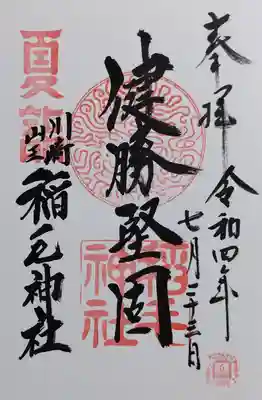 奉拝
令和四年
七月二十三日
健勝堅固
夏詣
川崎
山王
稲毛神社
稲毛神社